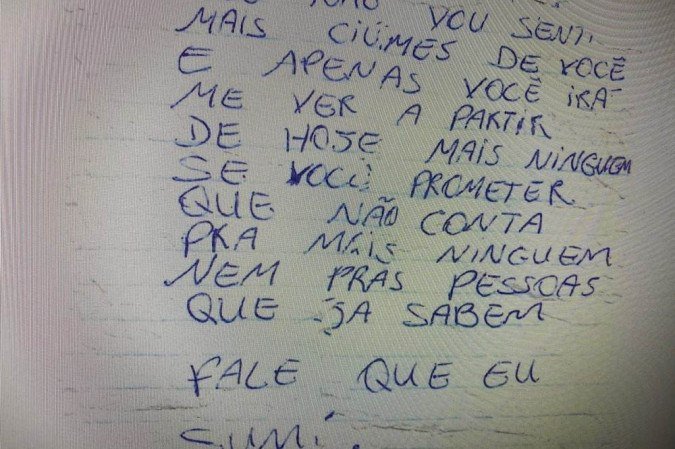 NÃO VOU SENTI
MAIS CIÜMES DE VOCÊ
E APENAS VOCÊ IRÁ
ME VER A PARTIR
DE HOJE MAIS NINGUEM
SE VOCÊ PROMETER
QUE NÃO CONTA
PRA MAIS NINGUEM
NEM PRAS PESSOAS
QUE JA SABEM
FALE QUE EU
SUMI.